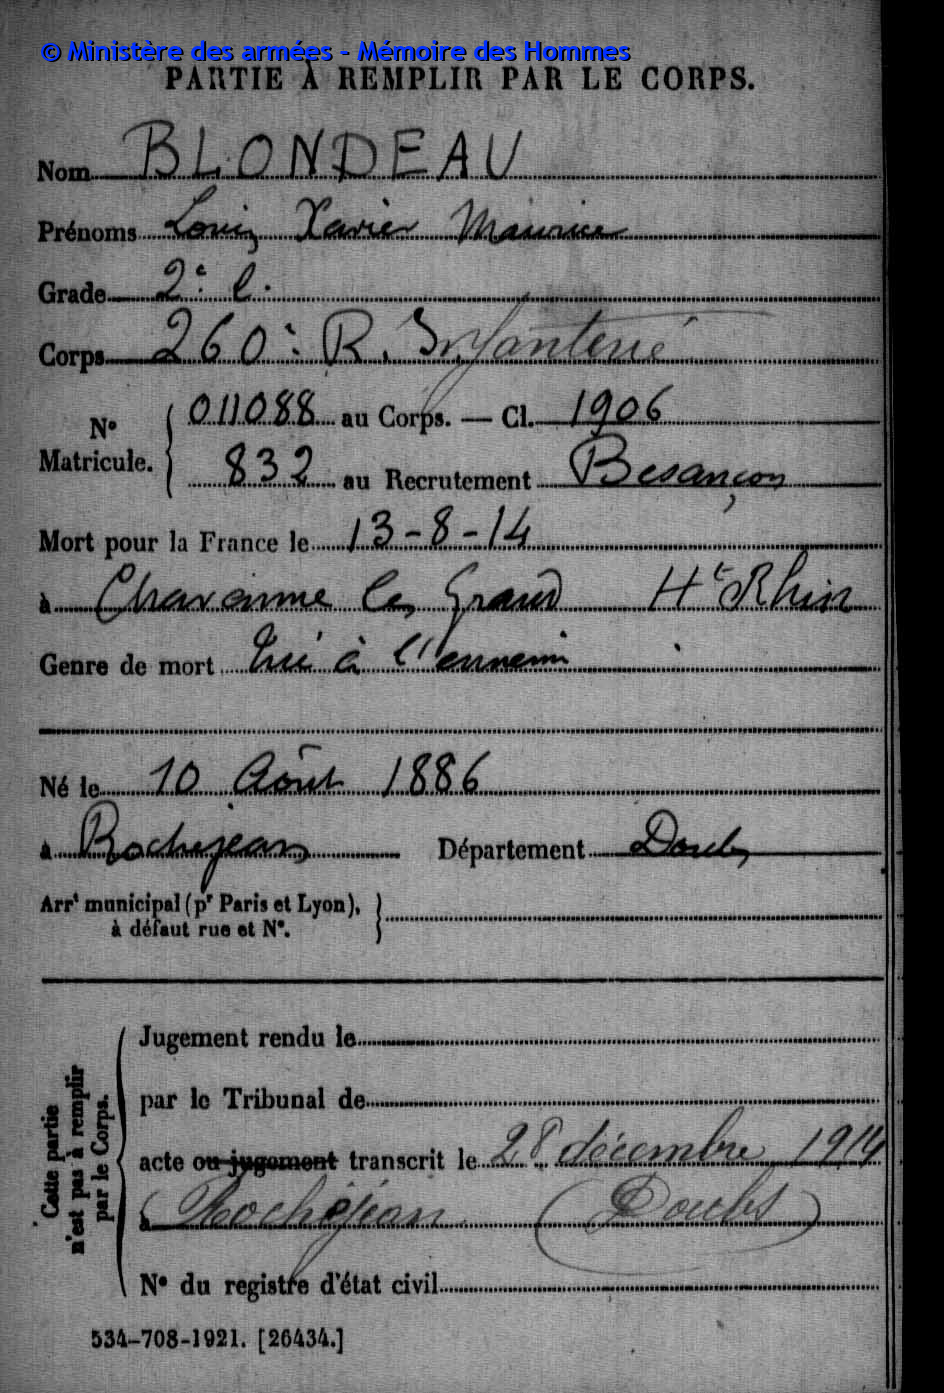 © Ministère des armées - Mémoire des Hommes
PARTIE À REMPLIR PAR LE CORPS.
Nom BLONDEAU
Prénoms Louis Xavier Maurice
Grade 2e c.
Corps 260e R. Infanterie
N° Matricule. 011088 au Corps. — Cl. 1906
832 au Recrutement Besançon
Mort pour la France le 13-8-14
à Chavanne les Grand Ht Rhin
Genre de mort Tué à l'ennemi
Né le 10 Août 1886
à Rochejean Département Doubs
Arrt municipal (pr Paris et Lyon),
à défaut rue et N°.
Cette partie
n'est pas à remplir
par le Corps.
Jugement rendu le
par le Tribunal de
acte ou jugement transcrit le 28 décembre 1914
à Rochejean (Doubs)
N° du registre d'état civil
534-708-1921. [26434.]